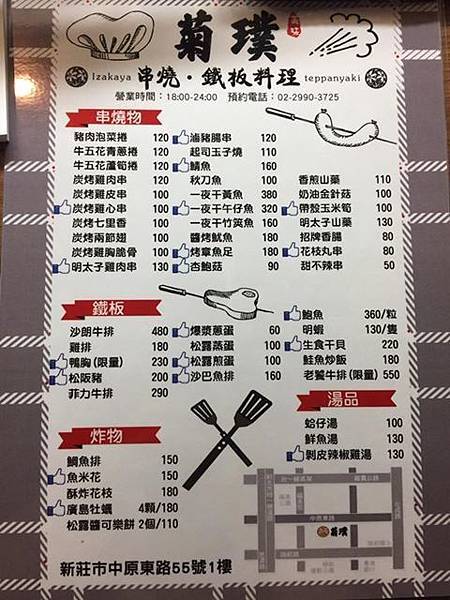 菊璞
Izakaya 串燒・鐵板料理 teppanyaki
營業時間：18:00-24:00 預約電話：02-2990-3725
串燒物
豬肉泡菜捲 120
牛五花青蔥捲 120
牛五花蘆筍捲 120
炭烤雞肉串 120
炭烤雞皮串 100
炭烤雞心串 100
炭烤七里香 100
炭烤兩節翅 100
炭烤雞胸脆骨 100
明太子雞肉串 130
滷豬腸串 120
起司玉子燒 110
鯖魚 160
秋刀魚 100
一夜干黃魚 380
一夜干午仔魚 320
一夜干竹筴魚 160
醬烤魷魚 180
烤章魚足 180
杏鮑菇 90
香煎山藥 110
奶油金針菇 100
帶殼玉米筍 100
明太子山藥 130
招牌香腸 80
花枝丸串 80
甜不辣串 50
鐵板
沙朗牛排 480
雞排 180
鴨胸(限量) 230
松阪豬 200
菲力牛排 290
爆漿蔥蛋 60
松露蒸蛋 100
松露煎蛋 100
沙巴魚排 160
鮑魚 360/粒
明蝦 130/隻
生食干貝 220
鮭魚炒飯 180
老饕牛排(限量) 550
湯品
蛤仔湯 100
鮮魚湯 130
剝皮辣椒雞湯 130
炸物
鯛魚排 150
魚米花 150
酥炸花枝 180
廣島牡蠣 4顆/180
松露醬可樂餅 2個/110
中原東路
菊璞
新莊市中原東路55號1樓